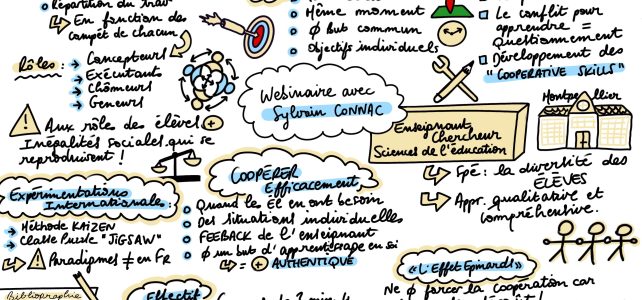 Répartition du Travail
↳ En fonction des
compét de chacun
Rôles :
→ Concepteurs
→ Exécutants
→ Chômeurs
→ Gêneurs
Aux rôle des élèves ⊕
Inégalités sociales qui se
reproduisent !
Expérimentations
Internationales :
→ Méthode KAIZEN
→ Classe Puzzle "JIGSAW"
↳ Paradigmes ≠ en FR
Bibliographie
Même moment
Ø But commun
Objectifs individuels
Webinaire avec
Sylvain CONNAC
Enseignant
Chercheur
Sciences de l'éducation
COOPÉRER
Efficacement
Quand les él en ont besoin
Des situations individuelles
FEEBACK de l'enseignant
Ø un but d'apprentissage en soi
↳ = ⊕ AUTHENTIQUE
Effectif
Le conflit pour
apprendre =
Questionnement
Développement des
"COOPERATIVE SKILLS"
Montpellier
↳ Spé : la diversité des
ÉLÈVES
↳ Appr. qualitative et
compréhensive.
« L'Effet Epinards »
Ne Ø forcer la coopération car